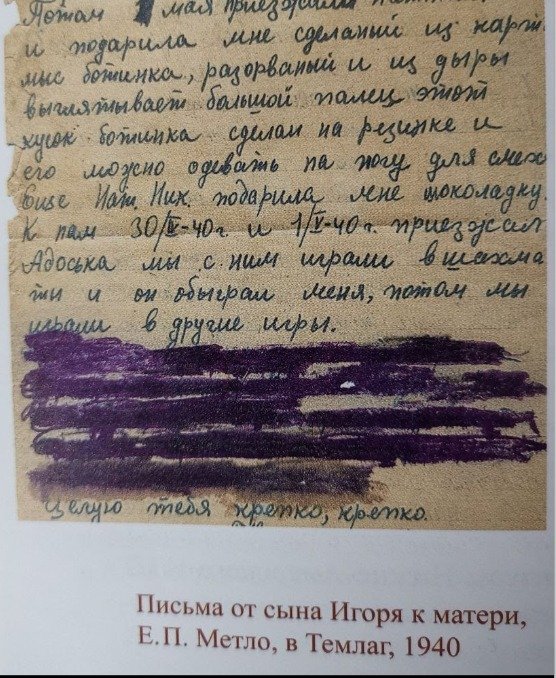 Потом 1 мая приезжали
и подарила мне сделаный из карт
мыс ботинка, разорваный и из дыры
выглятывает большой палец этот
кусок ботинка сделан на резинке и
его можно одевать на ногу для смех
Еще Нат. Ник. подарила мне шоколадку.
К нам 30/IV-40г. и 1/V-40г. приезжал
Адоська мы с ним играли в шахма
ти и он обыграл меня, потом мы
играли в другие игры.
Целую тебя крепко, крепко.
Письма от сына Игоря к матери,
Е.П. Метло, в Темлаг, 1940